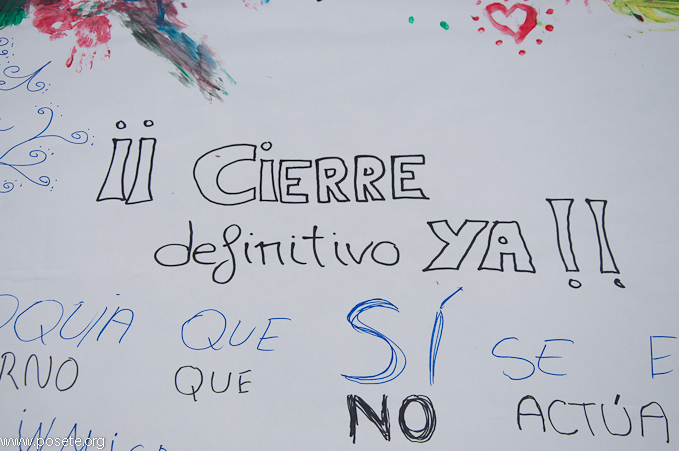 ¡¡ CIERRE
definitivo YA!!
OQUIA QUE SÍ SE E
RNO QUE NO ACTÚA
www.posete.org